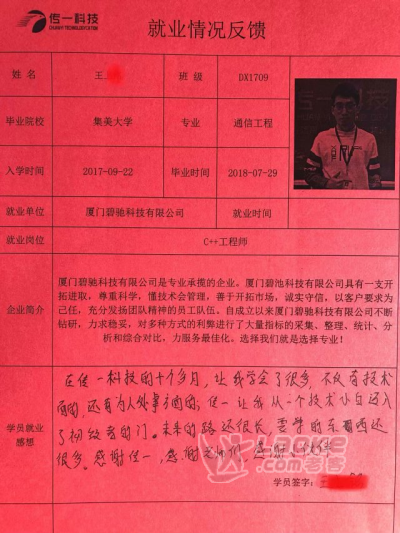 传一科技
就业情况反馈
姓 名 王 班 级 DX1709
毕业院校 集美大学 专业 通信工程
入学时间 2017-09-22 毕业时间 2018-07-29
就业单位 厦门碧驰科技有限公司 就业时间
就业岗位 C++工程师
厦门碧驰科技有限公司是专业承揽的企业。厦门碧池科技有限公司具有一支开
拓进取，尊重科学，懂技术会管理，善于开拓市场，诚实守信，以客户要求为
己任，充分发扬团队精神的员工队伍。自成立以来厦门碧驰科技有限公司不断
企业简介
钻研，力求稳妥，对多种方式的利弊进行了大量指标的采集、整理、统计、分
析和综合对比，力服务最佳化。选择我们就是选择专业！
在传一科技的十个多月，让我学会了很多，不仅有技术
面的，还有为人处事方面的；传一让我从一个技术小白迈入
学员就业
感想
了初级者的门。未来的路还很长，要学的东西还
很多。感谢传一，感谢
学员签字：